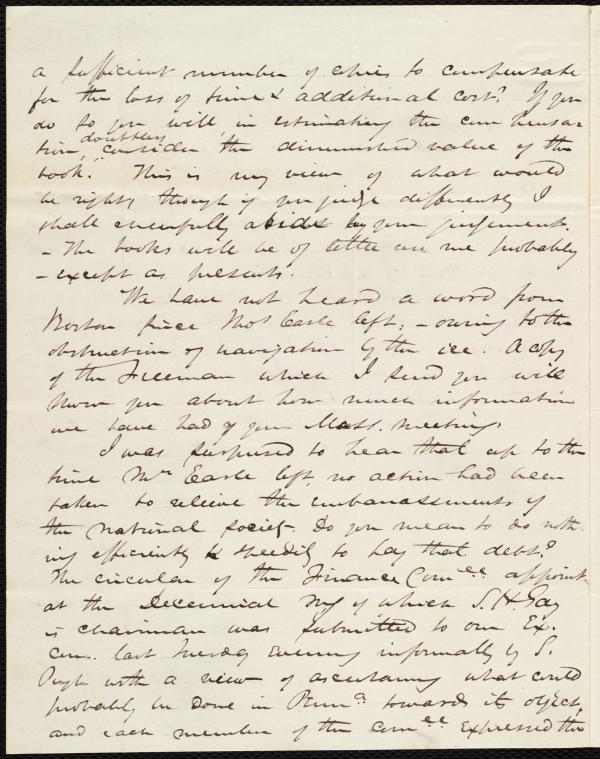 a sufficient number of copies to compensate
for the loss of time & additional cost? If you
do so you will in estimating the compensa-
tion, doubtless, consider the diminished value of the
book. This is my view of what would
be right, though if you judge differently I
shall cheerfully abide by your judgement.
- The books will be of little use me probably
- except as presents.
We have not heard a word from
Boston since Thos Earle left; - owing to the
obstruction of navigation by the ice. A copy
of the Freeman which I send you will
show you about how much information
we have had of your Mass. meeting.
I was surprised to hear that up to the
time Mr Earle left no action had been
taken to relieve the embarrassments of
the national society. Do you mean to do noth-
ing efficiently & speedily to pay that debt?
The circular of the Finance Comee appoint
at the Decennial mg of which S. H. Gay
is chairman was submitted to our Ex.
Com. last Tuesday evening informally by S.
Pugh with a view of ascertaining what could
probably be done in Penna towards its object,
and each member of the comee expressed the